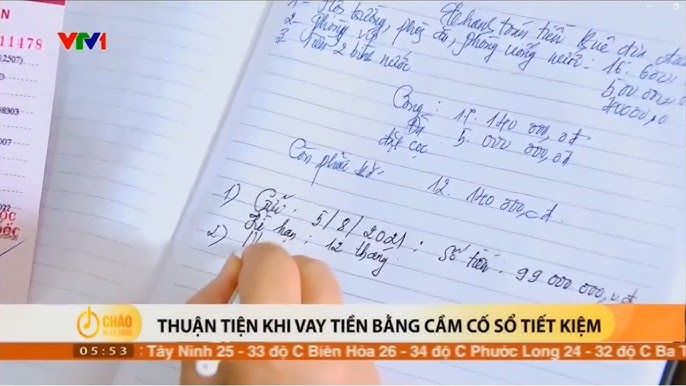 VTV1
11478
(2507)
8303
1 - Hội trường,
thanh toán tiền
2 - Phòng vip
phòng uống nước: 16. 600
3 Tiền 2 bình nước
500 000,
70000,0
Cộng: 17. 170 000,0đ
Đã đặt cọc 5. 000 000,0đ
Còn phải trả:
12. 170 000,0đ.
1) Gửi: 5/8/2021: Số tiền: 99 000 000,0đ
Kì hạn: 12 tháng.
2)
CHÀO
THUẬN TIỆN KHI VAY TIỀN BẰNG CẦM CỐ SỔ TIẾT KIỆM
05:53 Tây Ninh 25 - 33 độ C Biên Hòa 26 - 34 độ C Phước Long 24 - 32 độ C Ba T